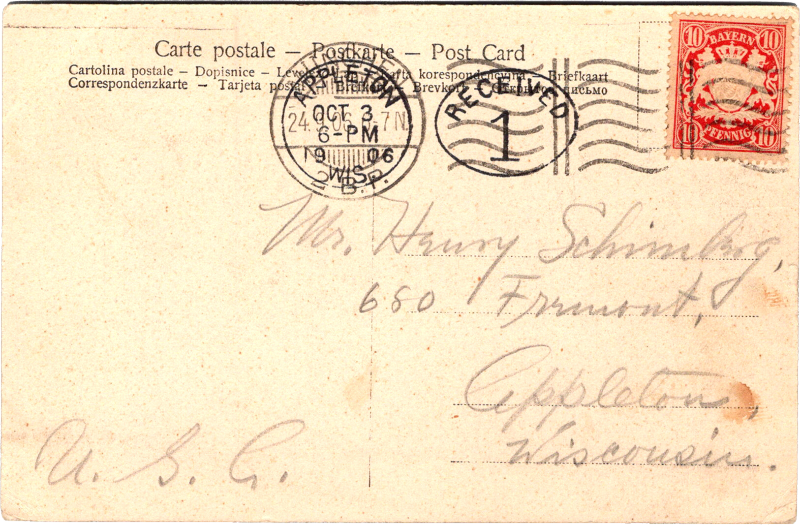 Carte postale – Postkarte – Post Card
Cartolina postale – Dopisnice – korespondencyjna – Briefkaart
Correspondenzkarte – Tarjeta postal – Brevkort – письмо
APPLETON
OCT 3
6-PM
1906
WIS.
24. 06 6-7N
2 B.P.
RECEIVED
1
10 BAYERN 10
10 PFENNIG 10
Mr. Henry Schimberg,
680 Fremont,
Appleton,
Wisconsin.
U. S. A.